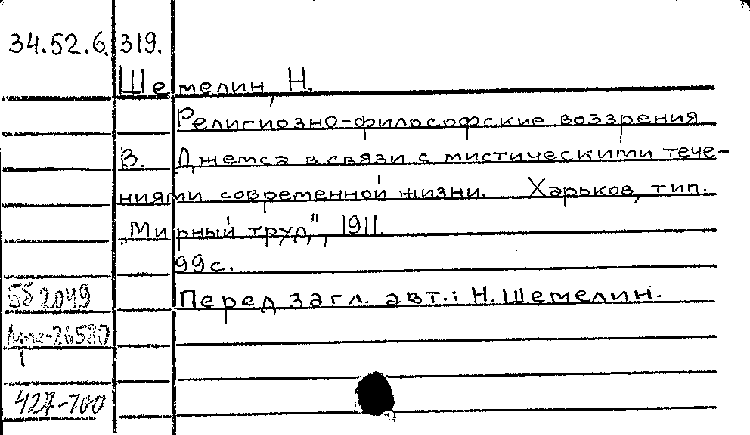 34.52.6.319.
Шемелин, Н.
Религиозно-философские воззрения
В. Джемса в связи с мистическими тече-
ниями современной жизни. Харьков, тип.
„Мирный труд", 1911.
99 с.
Бб 2049
Перед загл. авт.: Н. Шемелин.
427-700